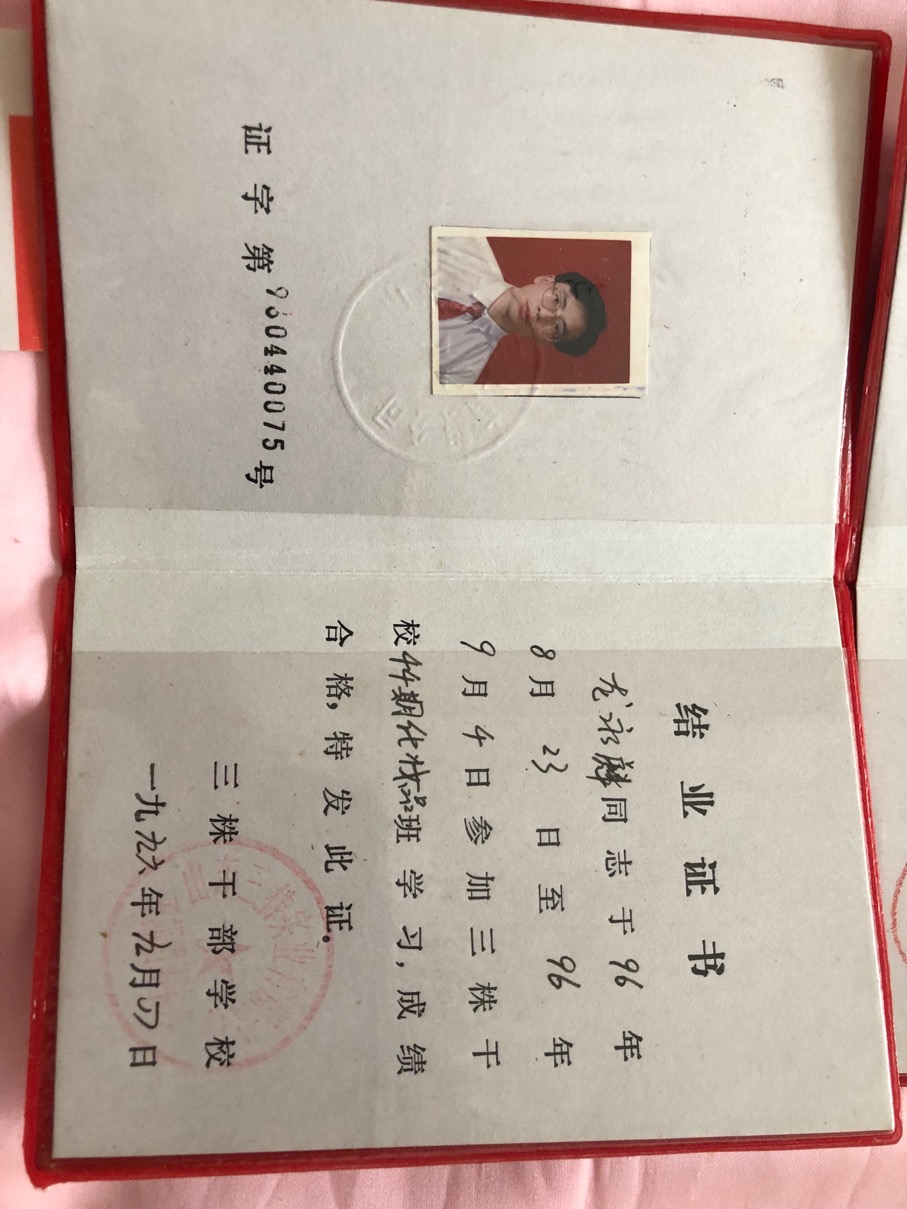 证字第930440075号
结业证书
龙永麟同志于96年
8月23日至96年
9月4日参加三株干
校44期化妆品班学习，成绩
合格，特发此证。
三株干部学校
一九九六年九月四日